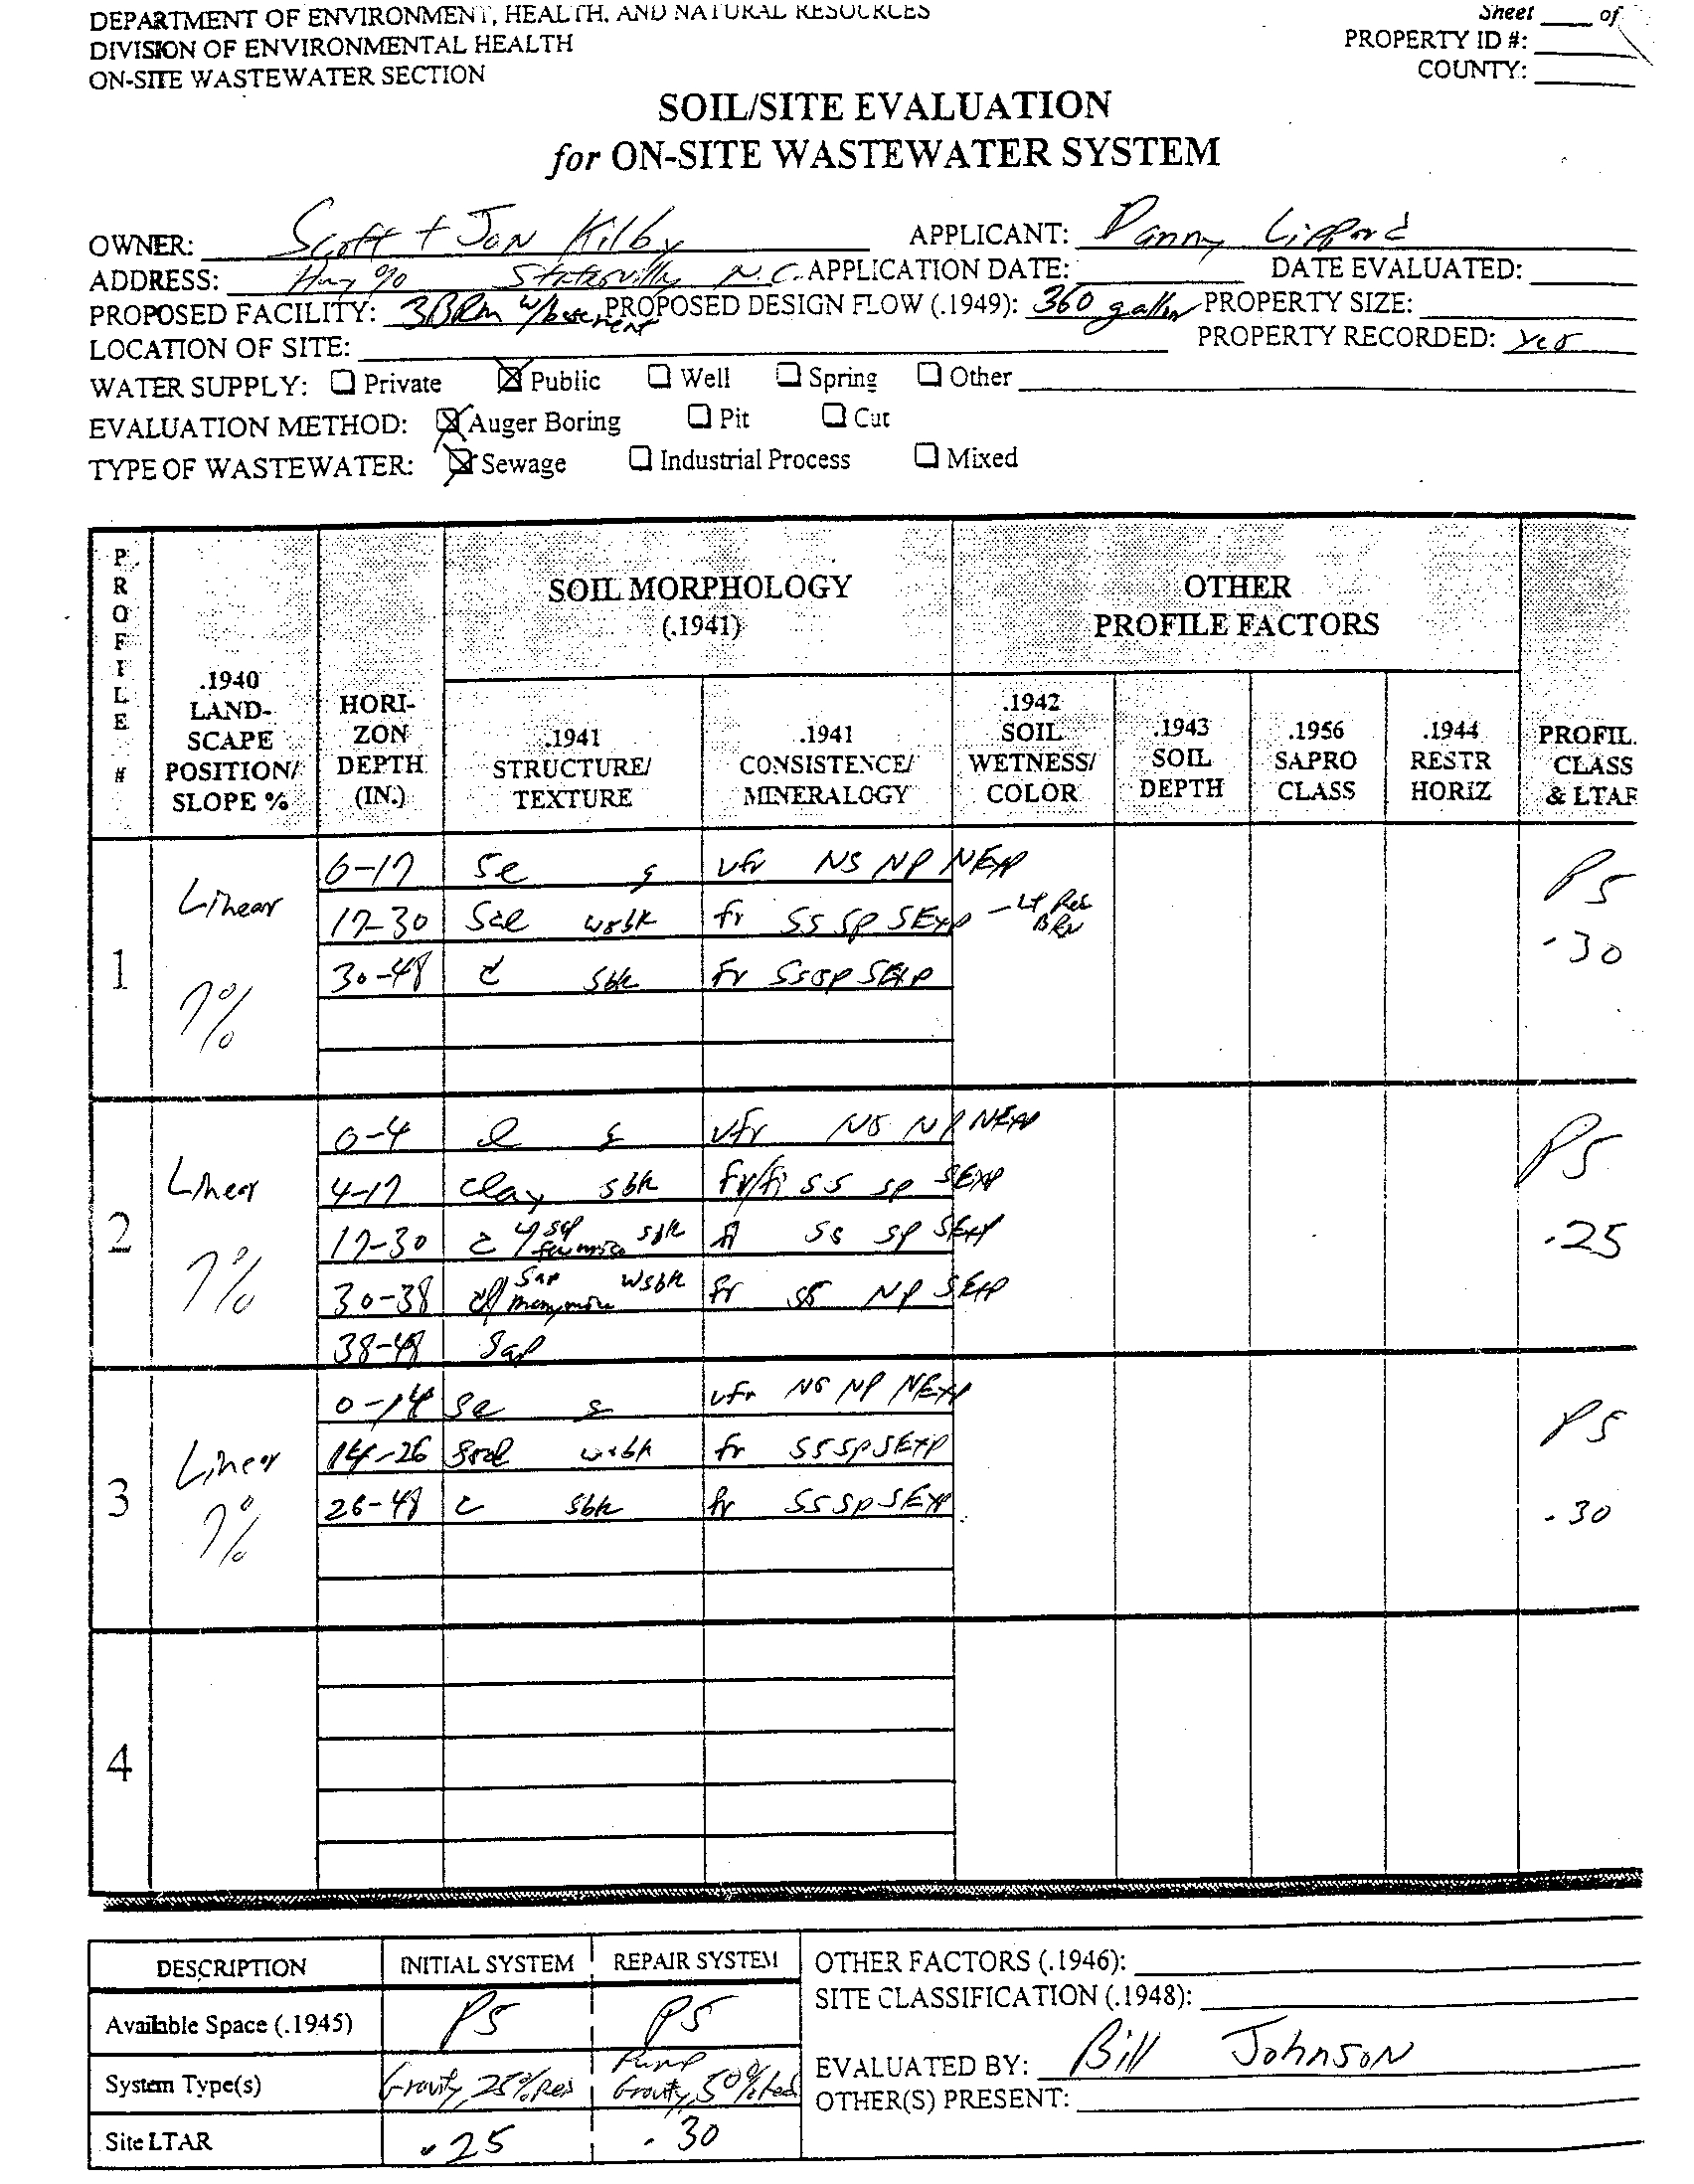 DEPARTMENT OF ENVIRONMENT, HEALTH, AND NATURAL RESOURCES
Sheet ____ of
DIVISION OF ENVIRONMENTAL HEALTH
PROPERTY ID #:
ON-SITE WASTEWATER SECTION
COUNTY:
SOIL/SITE EVALUATION
for ON-SITE WASTEWATER SYSTEM
OWNER: Scott + Jan Kilby APPLICANT: Danny Lipford
ADDRESS: Hwy 90 Statesville N.C. APPLICATION DATE: DATE EVALUATED:
PROPOSED FACILITY: 3BRm w/basement PROPOSED DESIGN FLOW (.1949): 360 gallon PROPERTY SIZE:
LOCATION OF SITE: PROPERTY RECORDED: Yes
WATER SUPPLY: ☐ Private ☒ Public ☐ Well ☐ Spring ☐ Other
EVALUATION METHOD: ☒ Auger Boring ☐ Pit ☐ Cut
TYPE OF WASTEWATER: ☒ Sewage ☐ Industrial Process ☐ Mixed
PROFILE #
.1940 LAND-SCAPE POSITION/ SLOPE %
HORI-ZON DEPTH (IN.)
SOIL MORPHOLOGY (.1941)
.1941 STRUCTURE/ TEXTURE
.1941 CONSISTENCE/ MINERALOGY
OTHER PROFILE FACTORS
.1942 SOIL WETNESS/ COLOR
.1943 SOIL DEPTH
.1956 SAPRO CLASS
.1944 RESTR HORIZ
PROFIL. CLASS & LTAR
1 Linear 7% PS .30
0-17 sl g vfr NS NP NEXP
17-30 scl wsbk fr SS SP SEXP - Lt Red BRN
30-48 c sbk fr SS SP SEXP
2 Linear 7% PS .25
0-4 l g vfr NS NP NEXP
4-17 clay sbk fr/fi SS SP SEXP
17-30 c w/ sap few mica sbk fi SS SP SEXP
30-38 cl/ sap many mica wsbk fr SS NP SEXP
38-48 Sap
3 Linear 7% PS .30
0-14 sl g vfr NS NP NEXP
14-26 wsbk fr SS SP SEXP
26-48 c sbk fr SS SP SEXP
4
DESCRIPTION INITIAL SYSTEM REPAIR SYSTEM
Available Space (.1945) PS PS
System Type(s) Gravity, 25% Red Pump Gravity, 50% Red
Site LTAR .25 .30
OTHER FACTORS (.1946):
SITE CLASSIFICATION (.1948):
EVALUATED BY: Bill Johnson
OTHER(S) PRESENT: